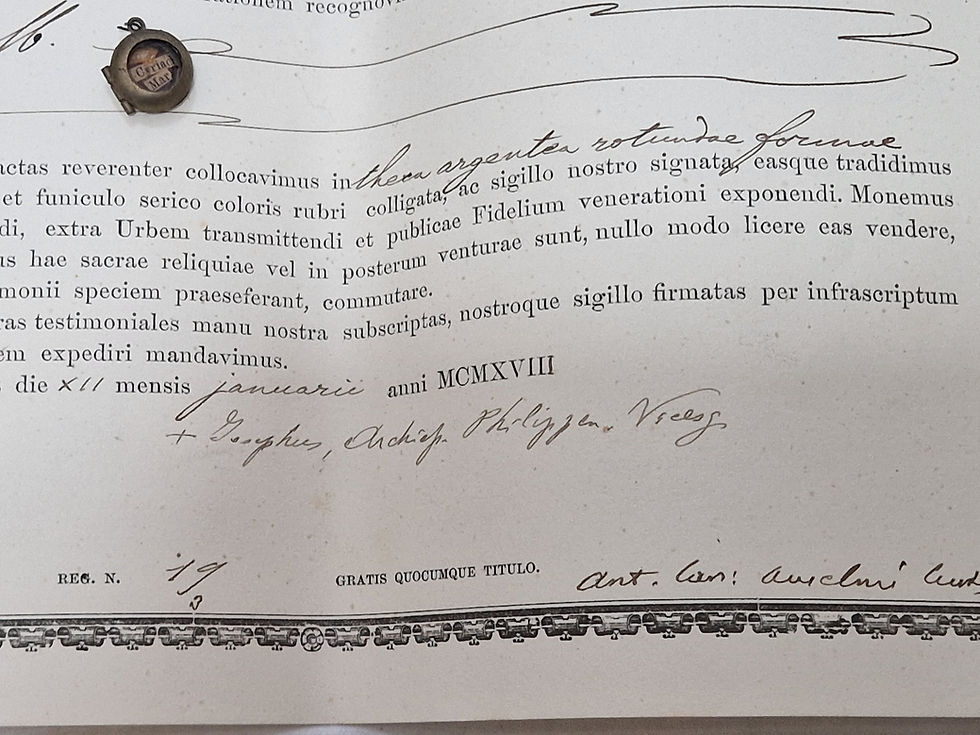 recognovi
M.
Cyriac
Mar
actas reverenter collocavimus in theca argentea rotundae formae
et funiculo serico coloris rubri colligata, ac sigillo nostro signata, easque tradidimus
di, extra Urbem transmittendi et publicae Fidelium venerationi exponendi. Monemus
us hae sacrae reliquiae vel in posterum venturae sunt, nullo modo licere eas vendere,
monii speciem praeseferant, commutare.
ras testimoniales manu nostra subscriptas, nostroque sigillo firmatas per infrascriptum
em expediri mandavimus.
die XII mensis januarii anni MCMXVIII
+ Josephus, Archiep. Philippen. Vicesg.
REG. N. 19
3 GRATIS QUOCUMQUE TITULO. Ant. Can: Anselmi